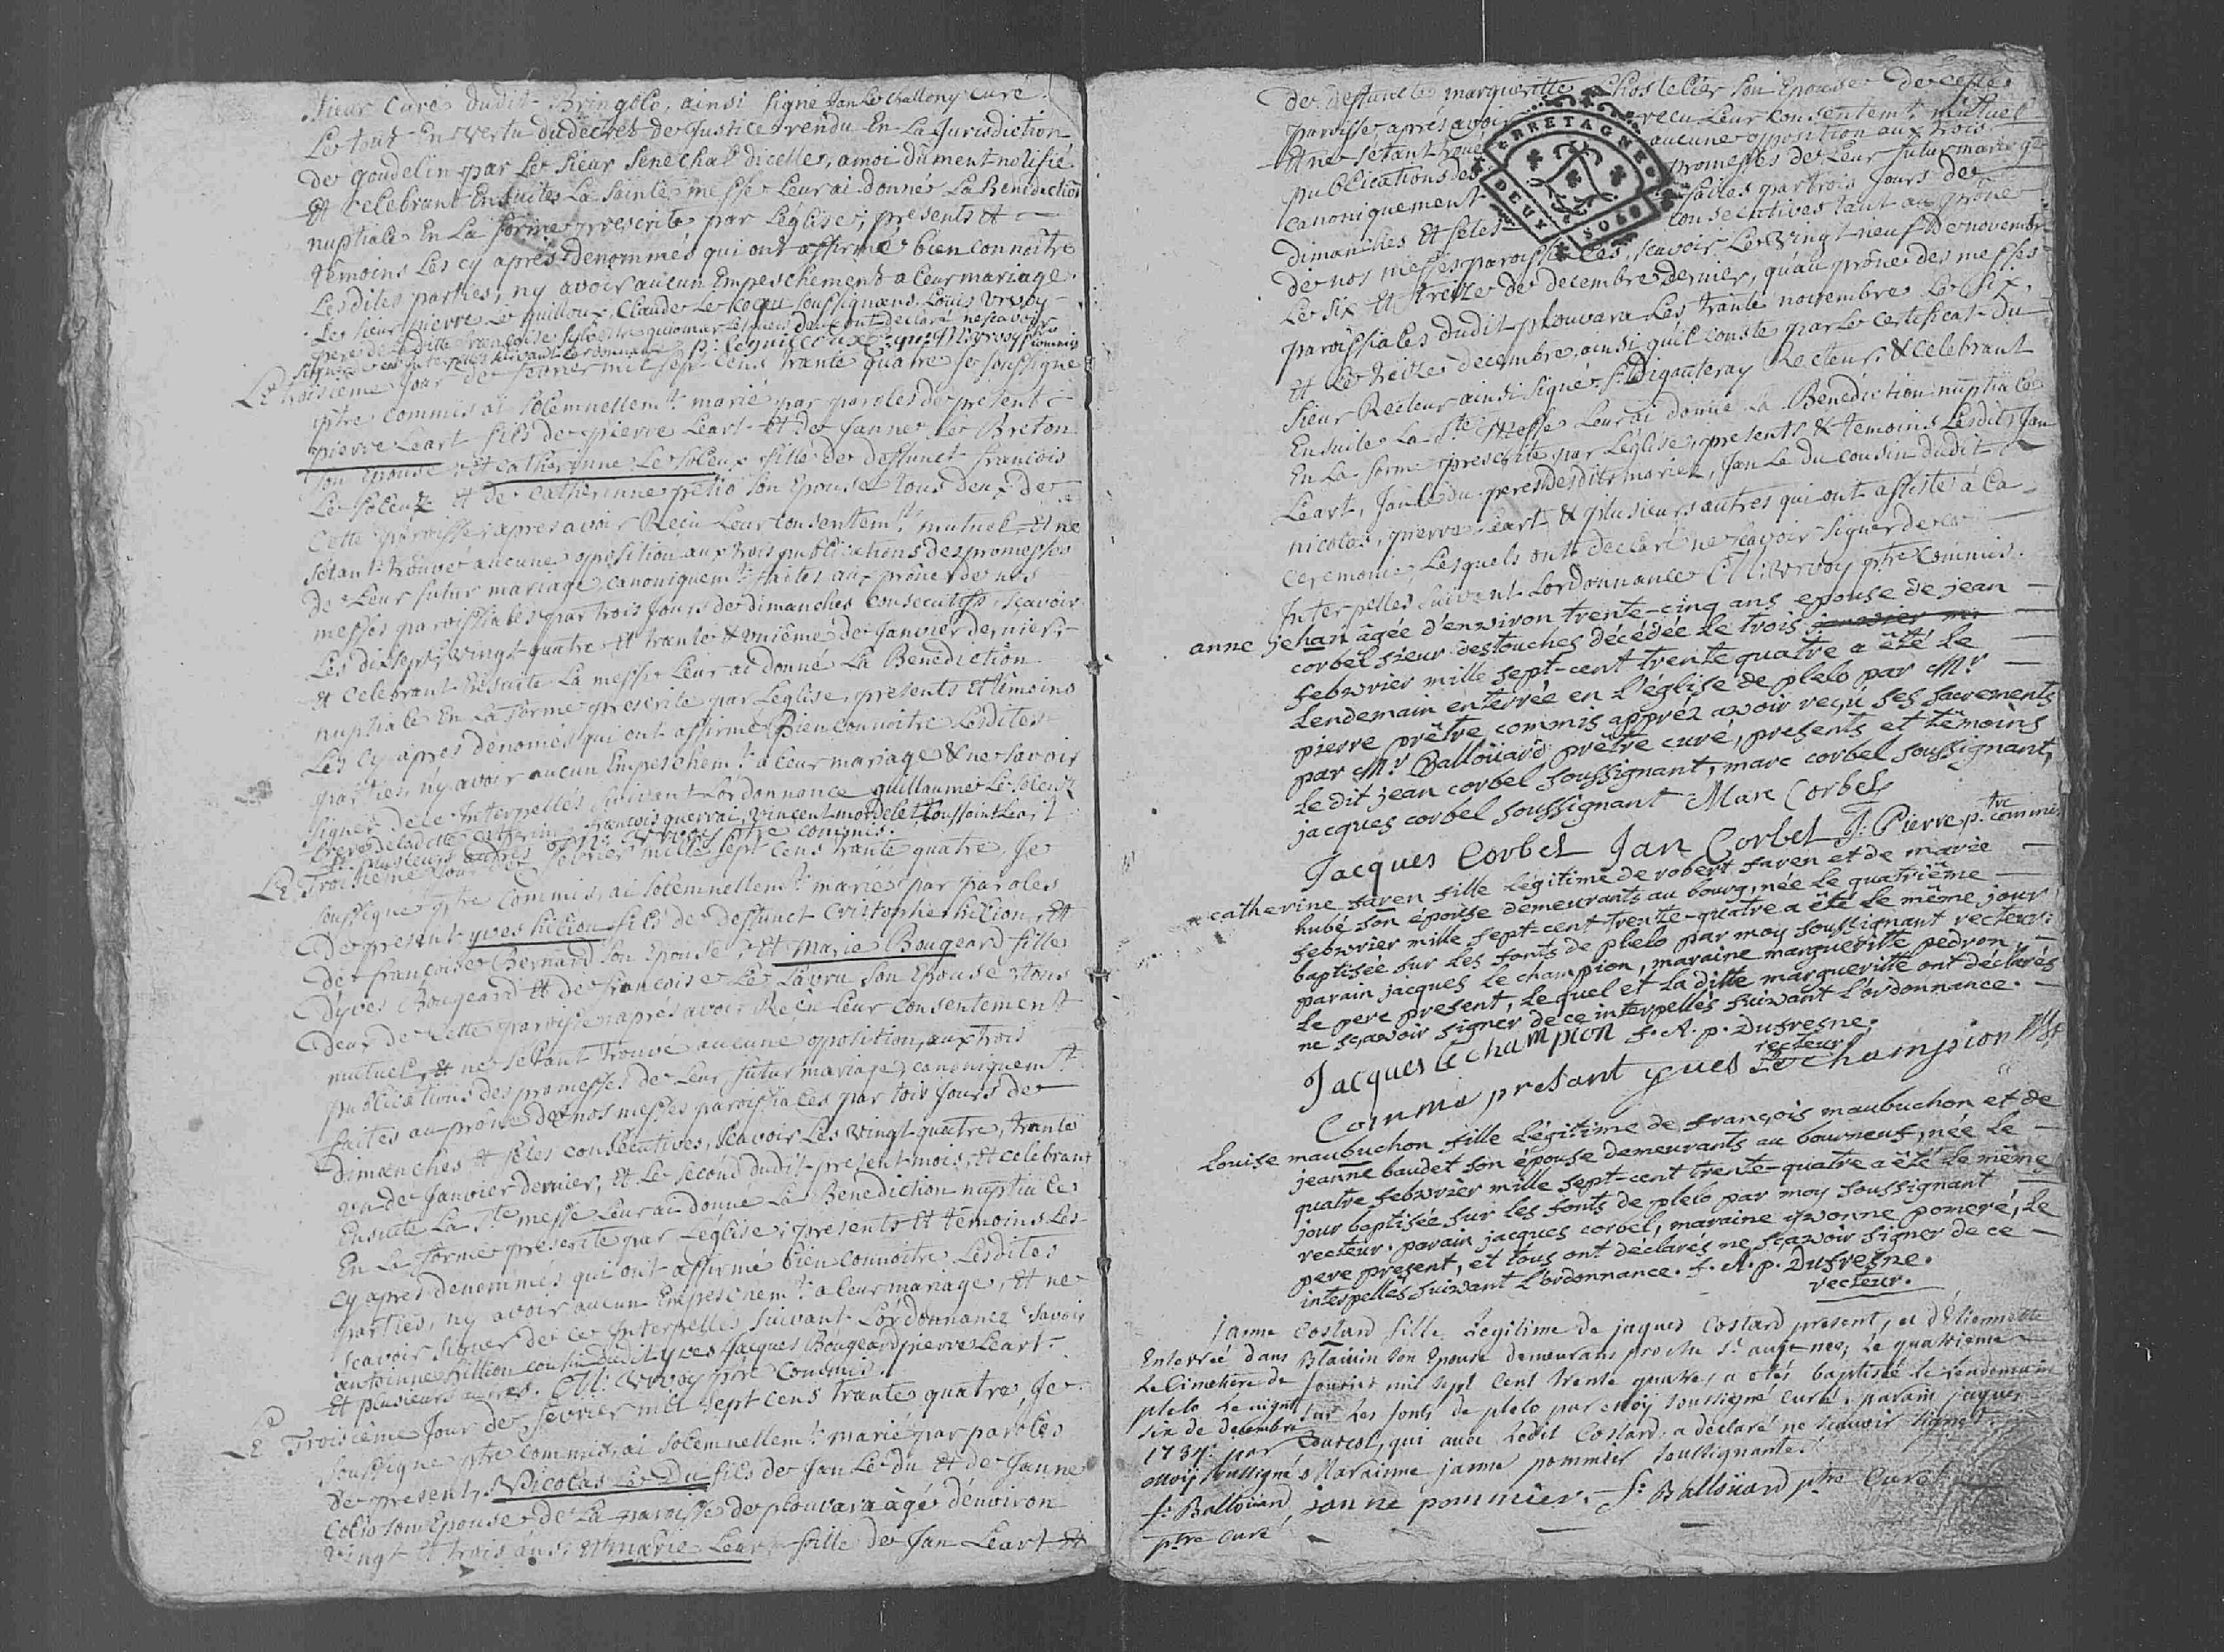 Sieur Curé dudit Bringolo, ainsi signé Jan Le Challony Curé.
Le tout En Vertu du décret de Justice rendu En La Jurisdiction
de goudelin par Le Sieur Senechal dicelle, a moi dûment notifié
Et celebrant Ensuite La sainte messe Leur ai donné La Benediction
nuptiale En La forme prescrite par L'église, présents et
témoins Les cy après dénommés qui ont affirmé bien connoître
Lesdites parties, ny avoir aucun Empeschement a leur mariage.
Le sieur pierre Le guilloux, Claude Le Cocqu soussignans Louis Vrvoy
pere de ladite francoise, Sylvestre quiomar Lesquels deux ont declaré ne scavoir
signer de ce Interpellés suivant L'ordonnance p: Leguilloux
Le troisieme Jour de fevrier mil sept cens trante quatre Je soussigné
ptre commis ai solemnellemt marié par paroles de present
pierre Leart fils de pierre Leart et de Janne Le Breton
son Epouse et Catherinne Le Soleux fille de deffunct francois
Le Soleux et de Catherinne petio son Epouse tous deux de
Cette paroisse, apres avoir Reçu Leur consentemt mutuel Et ne
setant trouvé aucune oposition aux trois publications des promesses
de Leur futur mariage canoniquemt faites aux prône de nos
messes paroissiales par trois Jours de dimanches consecutifs, sçavoir
Les dixsept, vingt quatre et trante & unième de Janvier dernier,
et Celebrant Ensuite La messe Leur ai donné La Benediction
nuptiale En La forme prescrite par L'eglise, presents et témoins
Les cy apres dénomés qui ont affirmé Bien connoitre Lesdites
parties, n'y avoir aucun Empeschemt a leur mariage & ne savoir
signer de ce Interpellés suivant L'ordonnance guillaume Le Soleux
frere de ladite Catherinne, francois guervai, vincent mordelet toussaint Leart
et plusieurs autres Vrvoy ptre commis.
Le Troisieme Jour de fevrier mille sept cens trante quatre, Je
soussigné ptre Commis, ai solemnellemt mariés par paroles
de present yves hillion fils de deffunct Cristophe hillion, et
de francoise Bernard son Epouse, et marie Bougeard fille
dyves Bougeard et de francoise Le Lavru son Epouse tous
deux de cette paroisse après avoir Reçu Leur Consentement
mutuel, et ne setant trouvé aucune oposition, aux trois
publications des promesses de Leur futur mariage canoniquemt
faites au prône de nos messes paroissiales par tois Jours de
dimanches et fêtes consécutives, sçavoir Les vingt quatre, trante
un de Janvier dernier, et Le second dudit present mois, et celebrant
Ensuite La Ste messe Leur ai donné La Benediction nuptiale
En La forme prescrite par L'église, presents et témoins Les
cy apres denommés qui ont affirmé bien connoitre Lesdites
parties, ny avoir aucun Empeschemt a leur mariage, et ne
scavoir signer de ce Interpellés suivant L'ordonnance savoir
antoinne hillion cousin dudit yves Jacques Bougeard pierre Leart
et plusieurs autres. M: Vrvoy ptre Commis.
Le Troisieme Jour de fevrier mil sept cens trante quatre, Je
soussigné ptre commis, ai solemnellemt marié par paroles
de present, Nicolas Le Du fils de Jan Le du et de Janne
Colio son Epouse de La paroisse de plouvara âgé dénviron
vingt et trois ans, et marie Leart fille de Jan Leart et
de deffuncte margueritte Lhostelier son Epouse de cette
paroisse, après avoir recu Leur Consentemt mutuel
Et ne setant trouvé aucune opposition aux trois
publications des promesses de Leur futur mariage
canoniquement faites par trois Jours de
Dimanches Et fêtes consecutives tant au prône
BRETAGNE
DEUX SOLS
de nos messes paroissiales, scavoir Le Vingt neuf De novembre
Le six et treize de decembre dernier, qu'au prône des messes
paroissiales dudit plouvara Les trante novembre Le six,
et Le treize decembre, ainsi qu'il conste par Le certificat du
sieur Recteur ainsi signé, Recteur, & celebrant
Ensuite La Ste Messe Leur ai donné La Benediction nuptiale
En La forme prescrite par L'église, presents & temoins Lesdits Jan
Leart, Jan Le du peres desdits mariez, Jan Le du cousin dudit
nicolas, pierre Leart & plusieurs autres qui ont assisté à La
Ceremonie, Lesquels ont déclaré ne scavoir signer de ce
Interpellés suivant L'ordonnance M: Vrvoy ptre Commis.
anne jehan âgée d'environ trente-cinq ans epouse de jean
corbel sieur destouches décédée le trois janvier mi
febvrier mille sept-cent trente quatre a êté le
lendemain enterrée en l'église de plelo par Mr
pierre prêtre commis appréz avoir reçu ses sacrements
par Mr Balloüard prêtre curé, presents et têmoins
le dit jean corbel soussignant, marc corbel soussignant,
jacques corbel soussignant Marc Corbel
Jacques Corbel Jan Corbel J: Pierre ptre commis
catherine faren fille légitime de robert faren et de marie
hubé son épouse demeurants au bourg, née le quatrième
febvrier mille sept-cent-trente-quatre a êté le même jour
baptisée sur les fonts de plelo par moy soussignant recteur
parain jacques le champion, maraine marguerite pedron,
le pere present, lequel et la ditte marguerite ont déclarés
ne sçavoir signer de ce interpellés suivant l'ordonnance.
Jacques le champion f. R. p. Dufresne,
recteur.
Comme presant yues Le champion
Louise maubuchon fille légitime de françois maubuchon et de
jeanne baudet son épouse demeurants au bourneuf, née le
quatre febvrier mille sept-cent trente-quatre a êté le même
jour baptisée sur les fonts de plelo par moy soussignant
recteur. parain jacques corbel, maraine yvonne pomeré, le
pere present, et tous ont déclarés ne sçavoir signer de ce
interpellés suivant l'ordonnance. f. R. p. Dufresne.
recteur.
Janne Costard fille Legitime de jaques Costard present, et d'Etiennette
Blaisin son Epouse demeurans proche St , le quatrieme
fevrier mil sept Cent trente quatre, a etés baptisée le lendemain
sur Les fonts de plelo par moy soussigné curé. parain jaques
Durest, qui avec Ledit Costard a déclaré ne scavoir signer.
Marainne janne pommier soussignante.
janne pommier. f: Balloüard ptre Curé
Enterreé dans
Le Cimetiere de
plelo Le vingt
six de decembre
1734. par
moy soussigné
f: Balloüard,
ptre curé